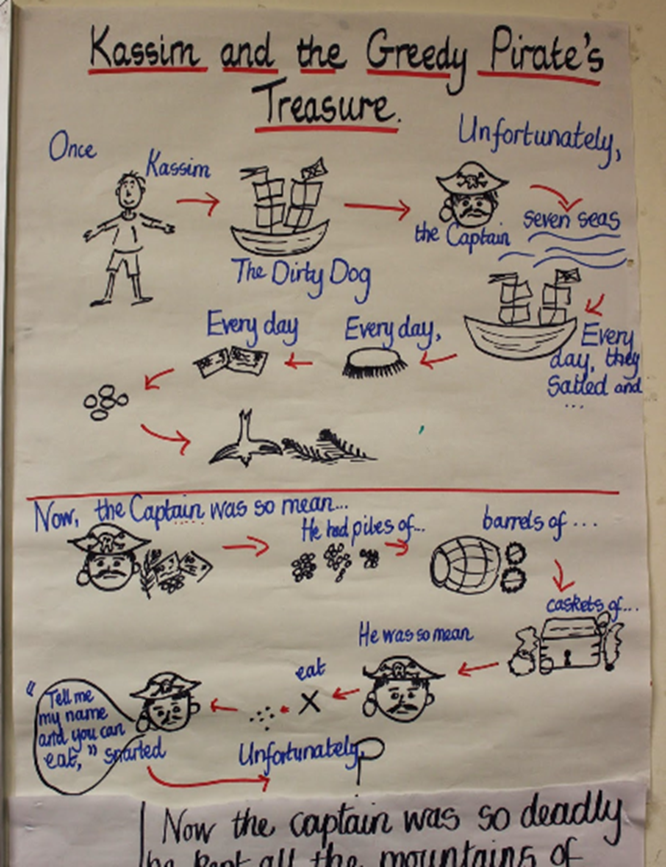 Kassim and the Greedy Pirate's
Treasure.
Once
Kassim
The Dirty Dog
Unfortunately,
the Captain
seven seas
Every
day, they
Sailed and
...
Every day,
Every day
Now, the Captain was so mean...
He had piles of...
barrels of ...
caskets of...
He was so mean
eat
"Tell me
my name
and you can
eat," snarled
Unfortunately,
Now the captain was so deadly
he kept all the mountains of